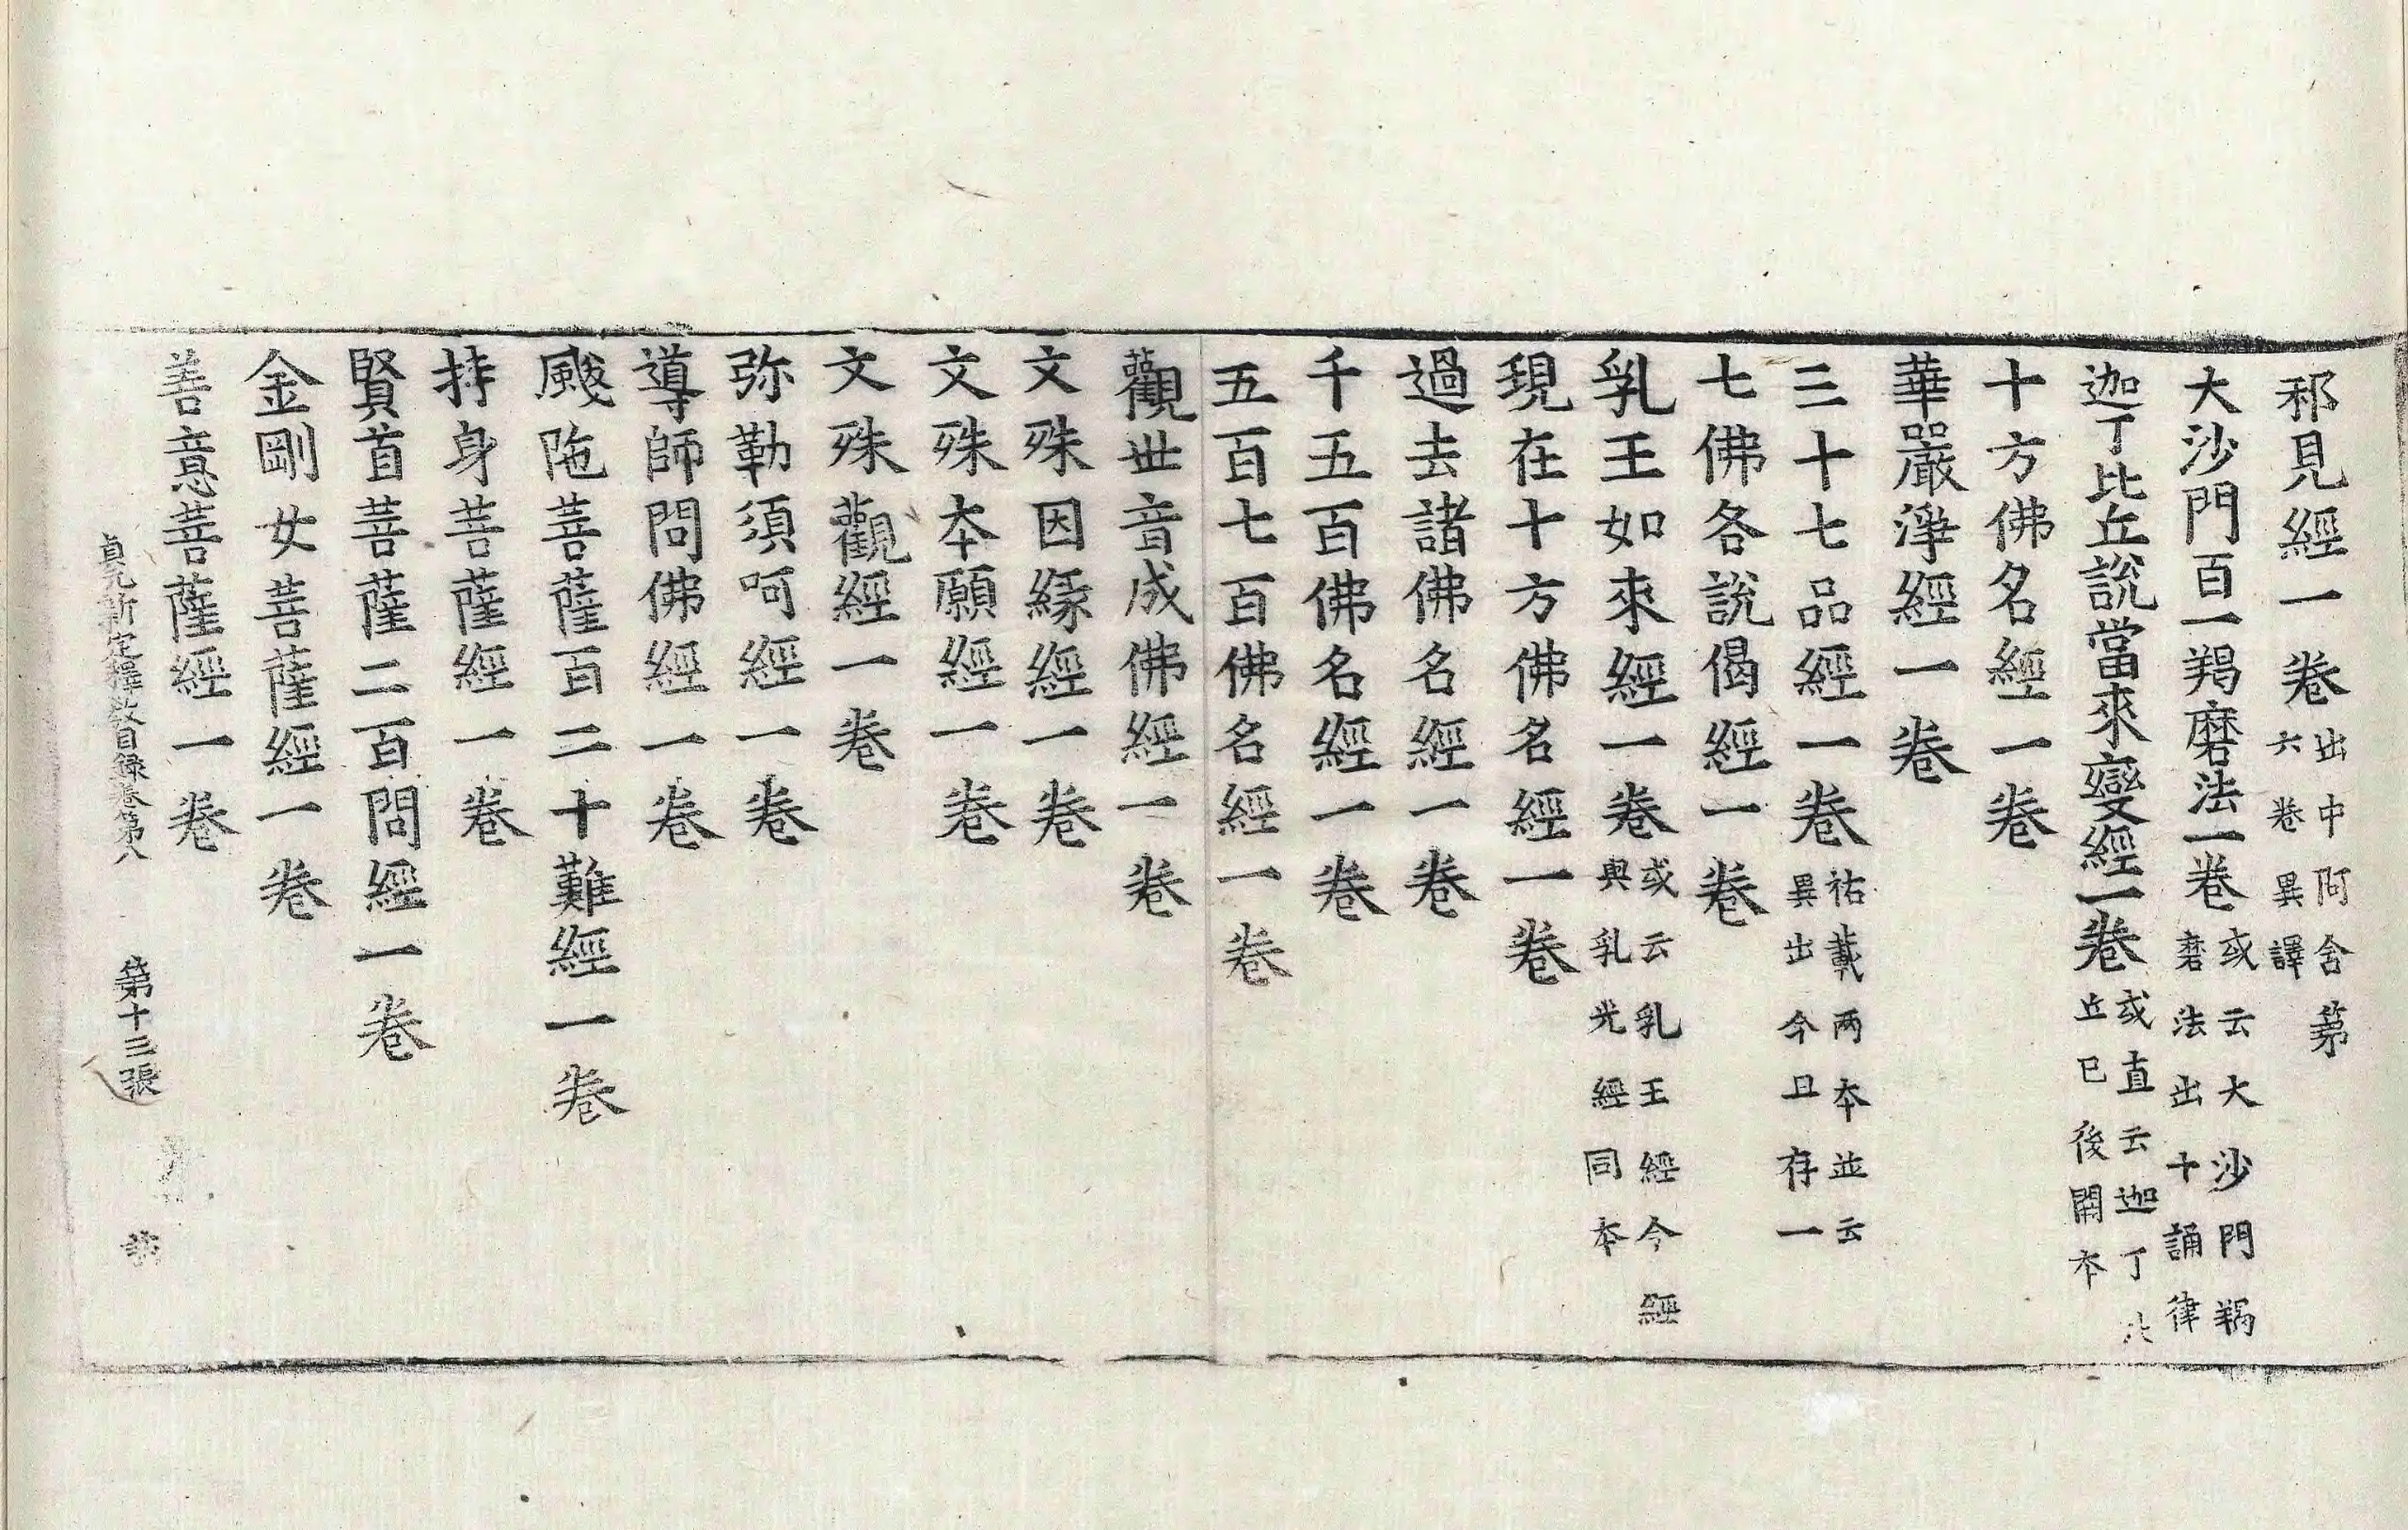 邪見經一卷出中阿含第六卷異譯
大沙門百一羯磨法一卷或云大沙門羯磨法出十誦律
迦丁比丘說當來變經一卷或直云迦丁比丘已後闕本
十方佛名經一卷
華嚴淨經一卷
三十七品經一卷祐載两本並云異出今且存一
七佛各說偈經一卷
乳王如來經一卷或云乳王經今經與乳光經同本
現在十方佛名經一卷
過去諸佛名經一卷
千五百佛名經一卷
五百七百佛名經一卷
觀世音成佛經一卷
文殊因緣經一卷
文殊本願經一卷
文殊觀經一卷
弥勒須呵經一卷
導師問佛經一卷
颰陁菩薩百二十難經一卷
持身菩薩經一卷
賢首菩薩二百問經一卷
金剛女菩薩經一卷
善意菩薩經一卷
貞元新定釋教目録卷第八 第十三張